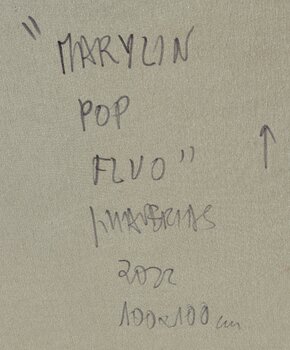 "MARYLIN
POP
FLUO"
2022
100x100 cm